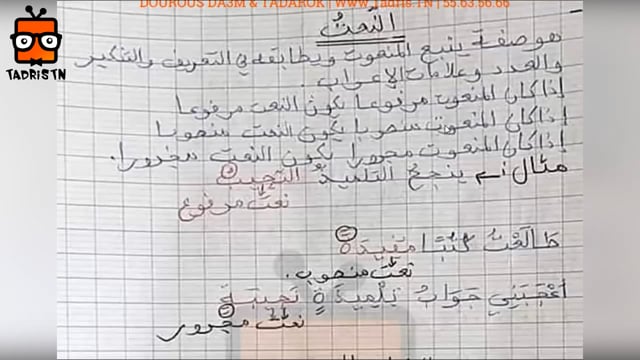 DOUROUS DA3M & TADAROK | www.Tadris.TN | 55.63.56.66
TADRISTN
النَّعْتُ
هو صفة يتبع المنعوت ويطابقه في التعريف والتنكير
والعدد وعلامات الإعراب.
إذا كان المنعوت مرفوعا يكون النعت مرفوعا
إذا كان المنعوت منصوبا يكون النعت منصوبا
إذا كان المنعوت مجرورا يكون النعت مجرورا.
مثال: ينجح التلميذُ النجيبُ
نعت مرفوع
طَالَعْتُ كُتُبًا مُفِيدَةً
نعت منصوب.
أعْجَبَنِي جَوَابُ تِلْمِيذَةٍ نَجِيبَةٍ
نعت مجرور